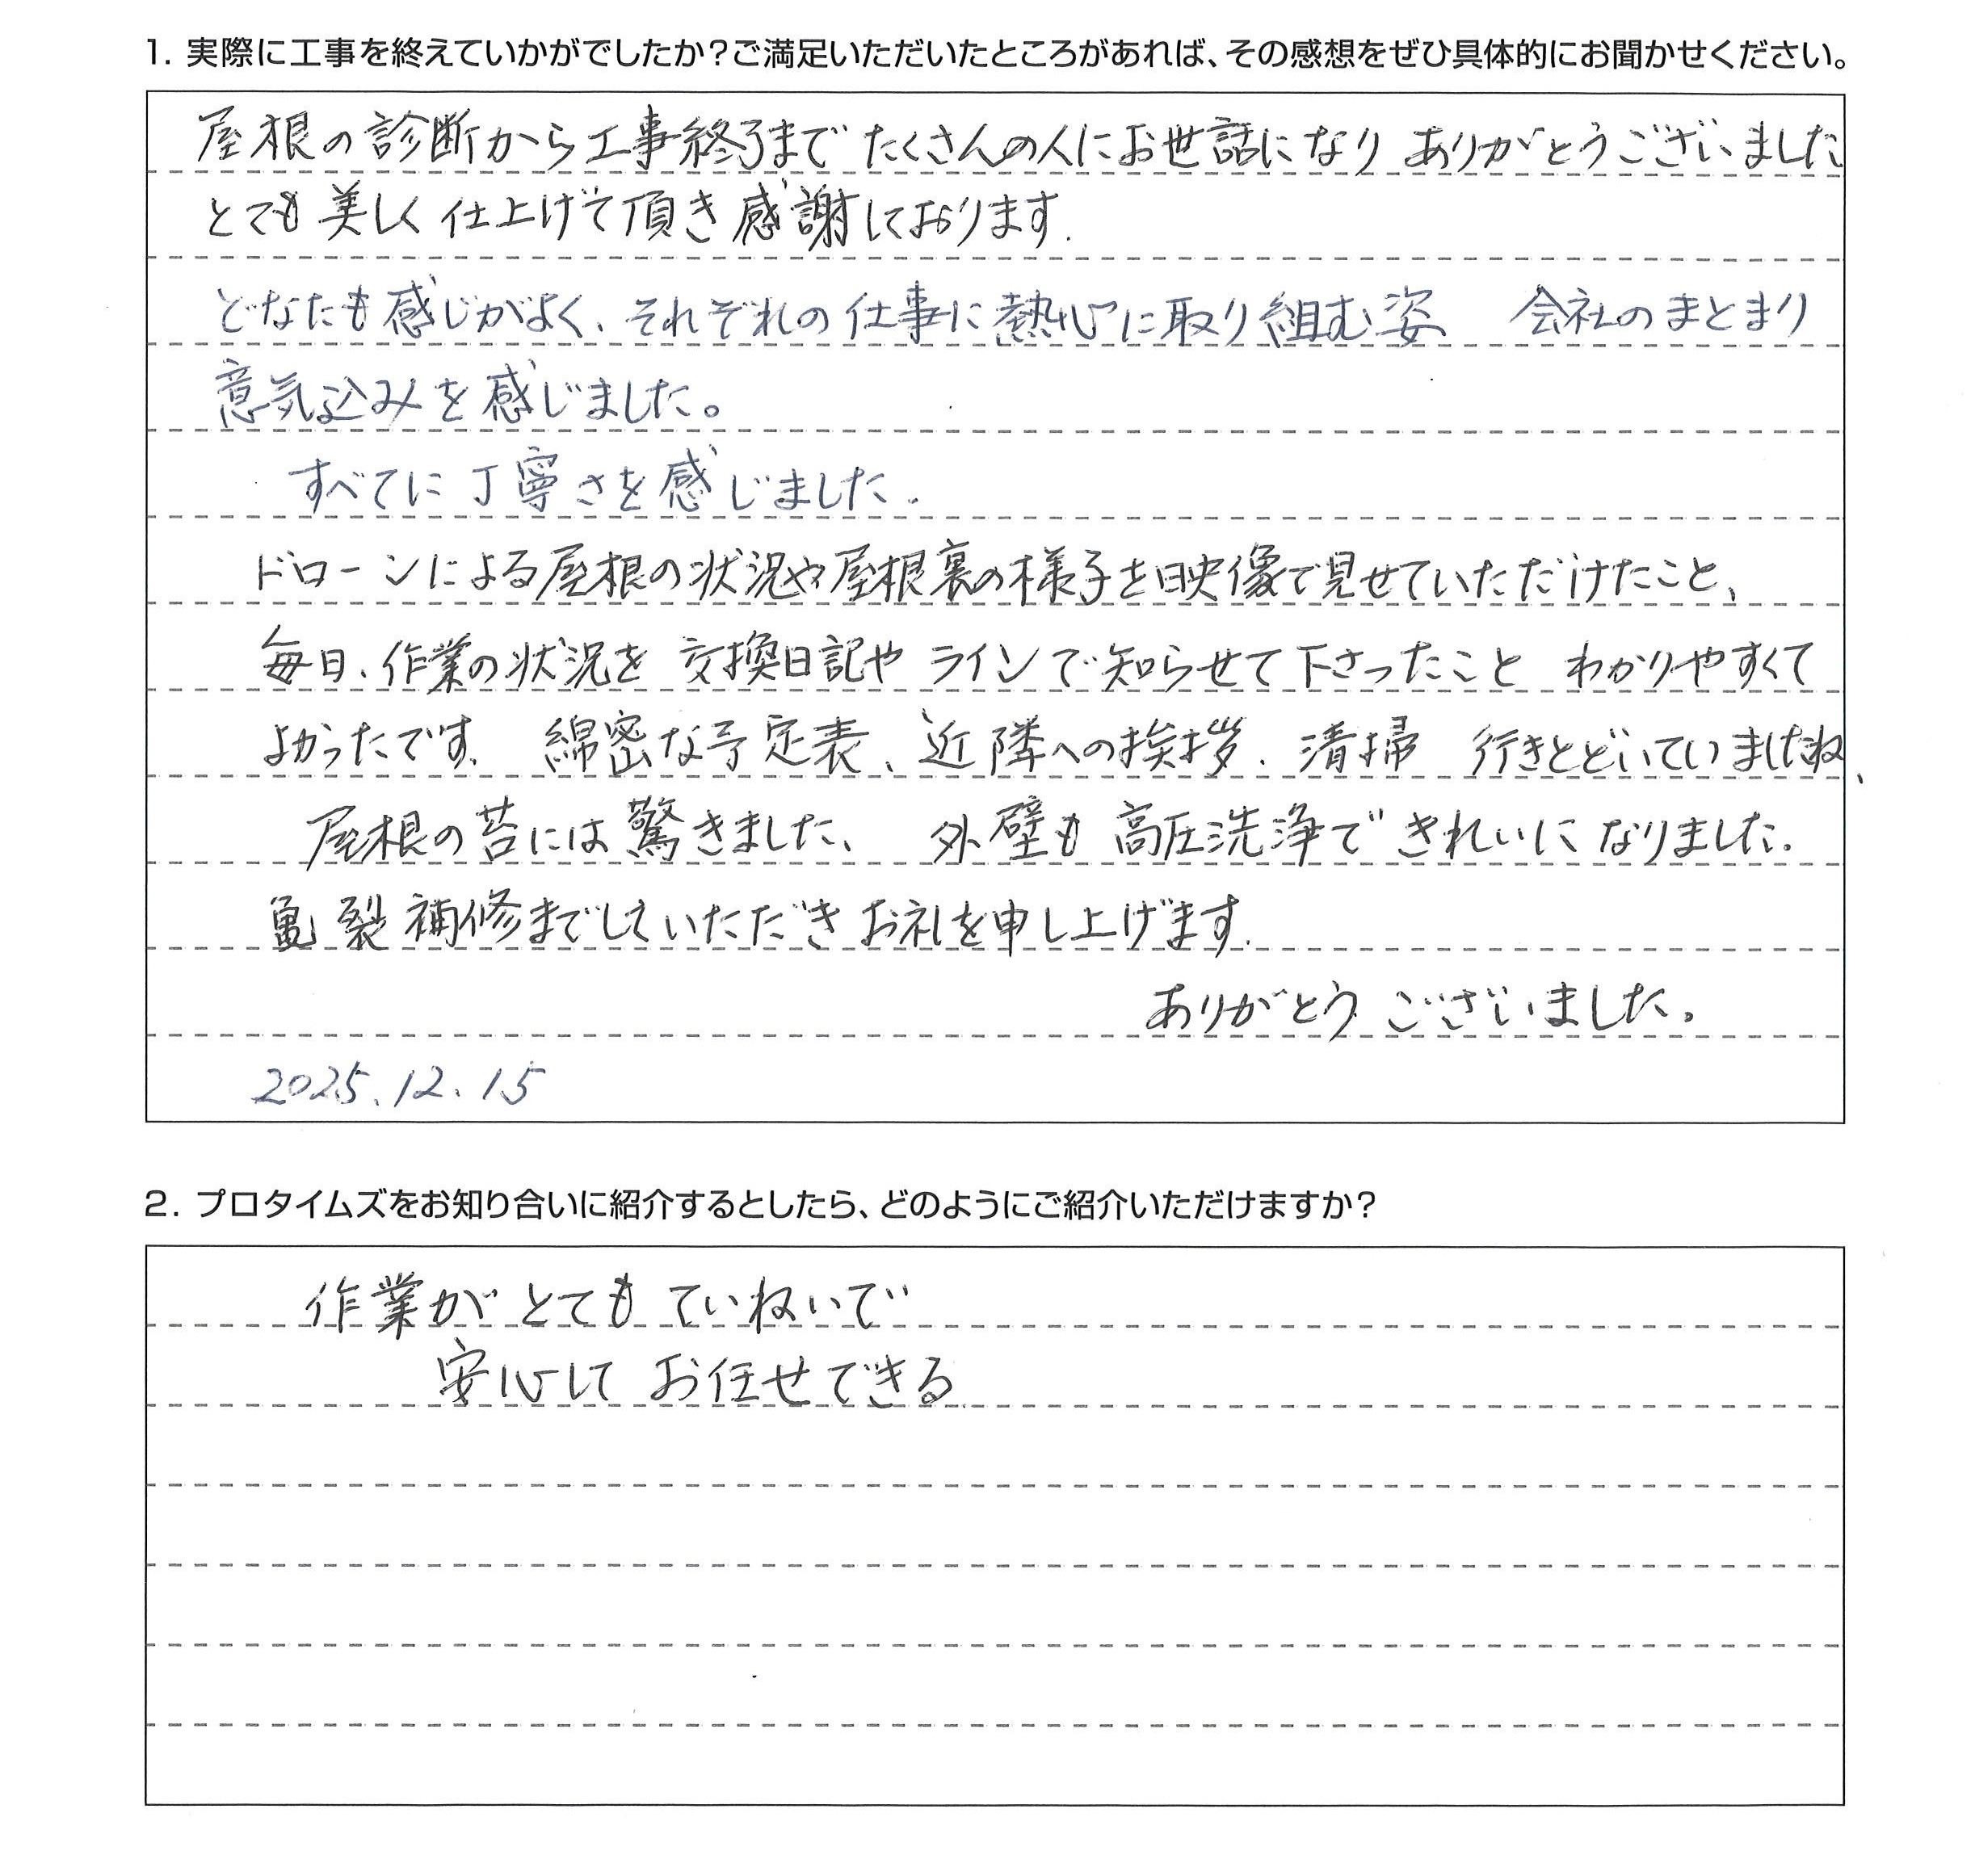 1. 実際に工事を終えていかがでしたか？ご満足いただいたところがあれば、その感想をぜひ具体的にお聞かせください。
屋根の診断から工事終了まで たくさんの人にお世話になり ありがとうございました
とても 美しく 仕上げて頂き感謝しております.
どなたも感じがよく、それぞれの仕事に熱心に取り組む姿、 会社のまとまり
意気込みを感じました。
すべてに丁寧さを感じました.
ドローンによる屋根の状況や屋根裏の様子を映像で見せていただけたこと、
毎日、作業の状況を 交換日記や ラインで知らせて下さったこと わかりやすくて
よかったです. 綿密な予定表、近隣への挨拶. 清掃 行きとどいていましたね、
屋根の苔には驚きました、 外壁も 高圧洗浄で きれいに なりました.
亀裂補修までしていただき お礼を申し上げます.
ありがとう ございました。
2025.12.15
2. プロタイムズをお知り合いに紹介するとしたら、どのようにご紹介いただけますか？
作業が とても ていねいで
安心して お任せできる